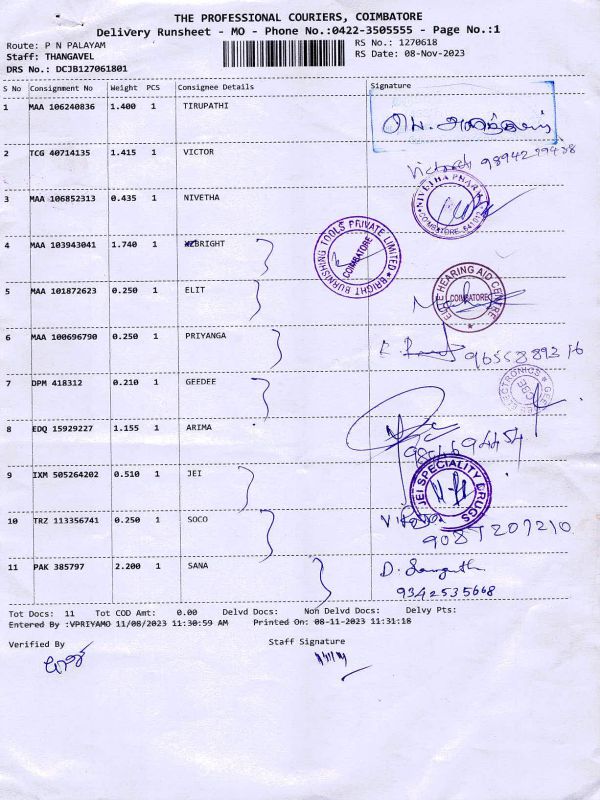 THE PROFESSIONAL COURIERS, COIMBATORE
Delivery Runsheet - MO - Phone No.:0422-3505555 - Page No.:1
Route: P N PALAYAM
RS No.: 1270618
Staff: THANGAVEL
RS Date: 08-Nov-2023
DRS No.: DCJB127061801
S No Consignment No Weight PCS Consignee Details Signature
1 MAA 106240836 1.400 1 TIRUPATHI
2 TCG 40714135 1.415 1 VICTOR
9894299438
3 MAA 106852313 0.435 1 NIVETHA
NIVETHA PHARMA
COIMBATORE
4 MAA 103943041 1.740 1 BRIGHT
BRIGHT BURNISHING TOOLS PRIVATE LIMITED
COIMBATORE
5 MAA 101872623 0.250 1 ELIT
HEARING AID CENTRE
COIMBATORE
6 MAA 100696790 0.250 1 PRIYANGA
7 DPM 418312 0.210 1 GEEDEE
ELECTRONICS
8 EDQ 15929227 1.155 1 ARIMA
9 IXM 505264202 0.510 1 JEI
JEI SPECIALITY DRUGS
10 TRZ 113356741 0.250 1 SOCO
11 PAK 385797 2.200 1 SANA
9342535668
Tot Docs: 11 Tot COD Amt: 0.00 Delvd Docs: Non Delvd Docs: Delvy Pts:
Entered By :VPRIYAMO 11/08/2023 11:30:59 AM Printed On: 08-11-2023 11:31:18
Verified By Staff Signature